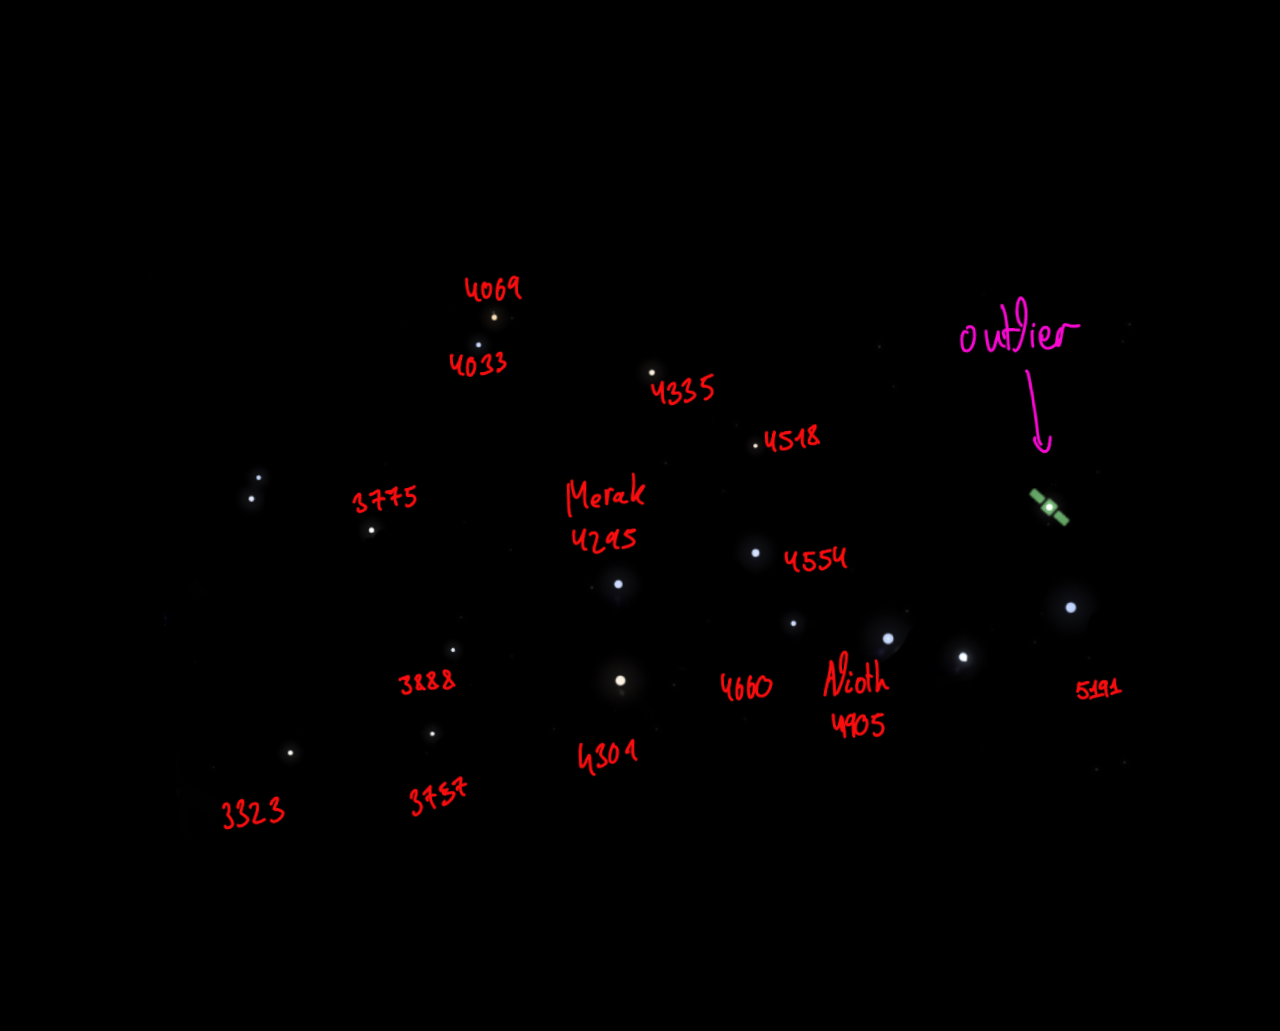 4069
4033
outlier
4335
4518
3775
Merak
4295
4554
3888
4660
Alioth
4905
5191
4301
3757
3323